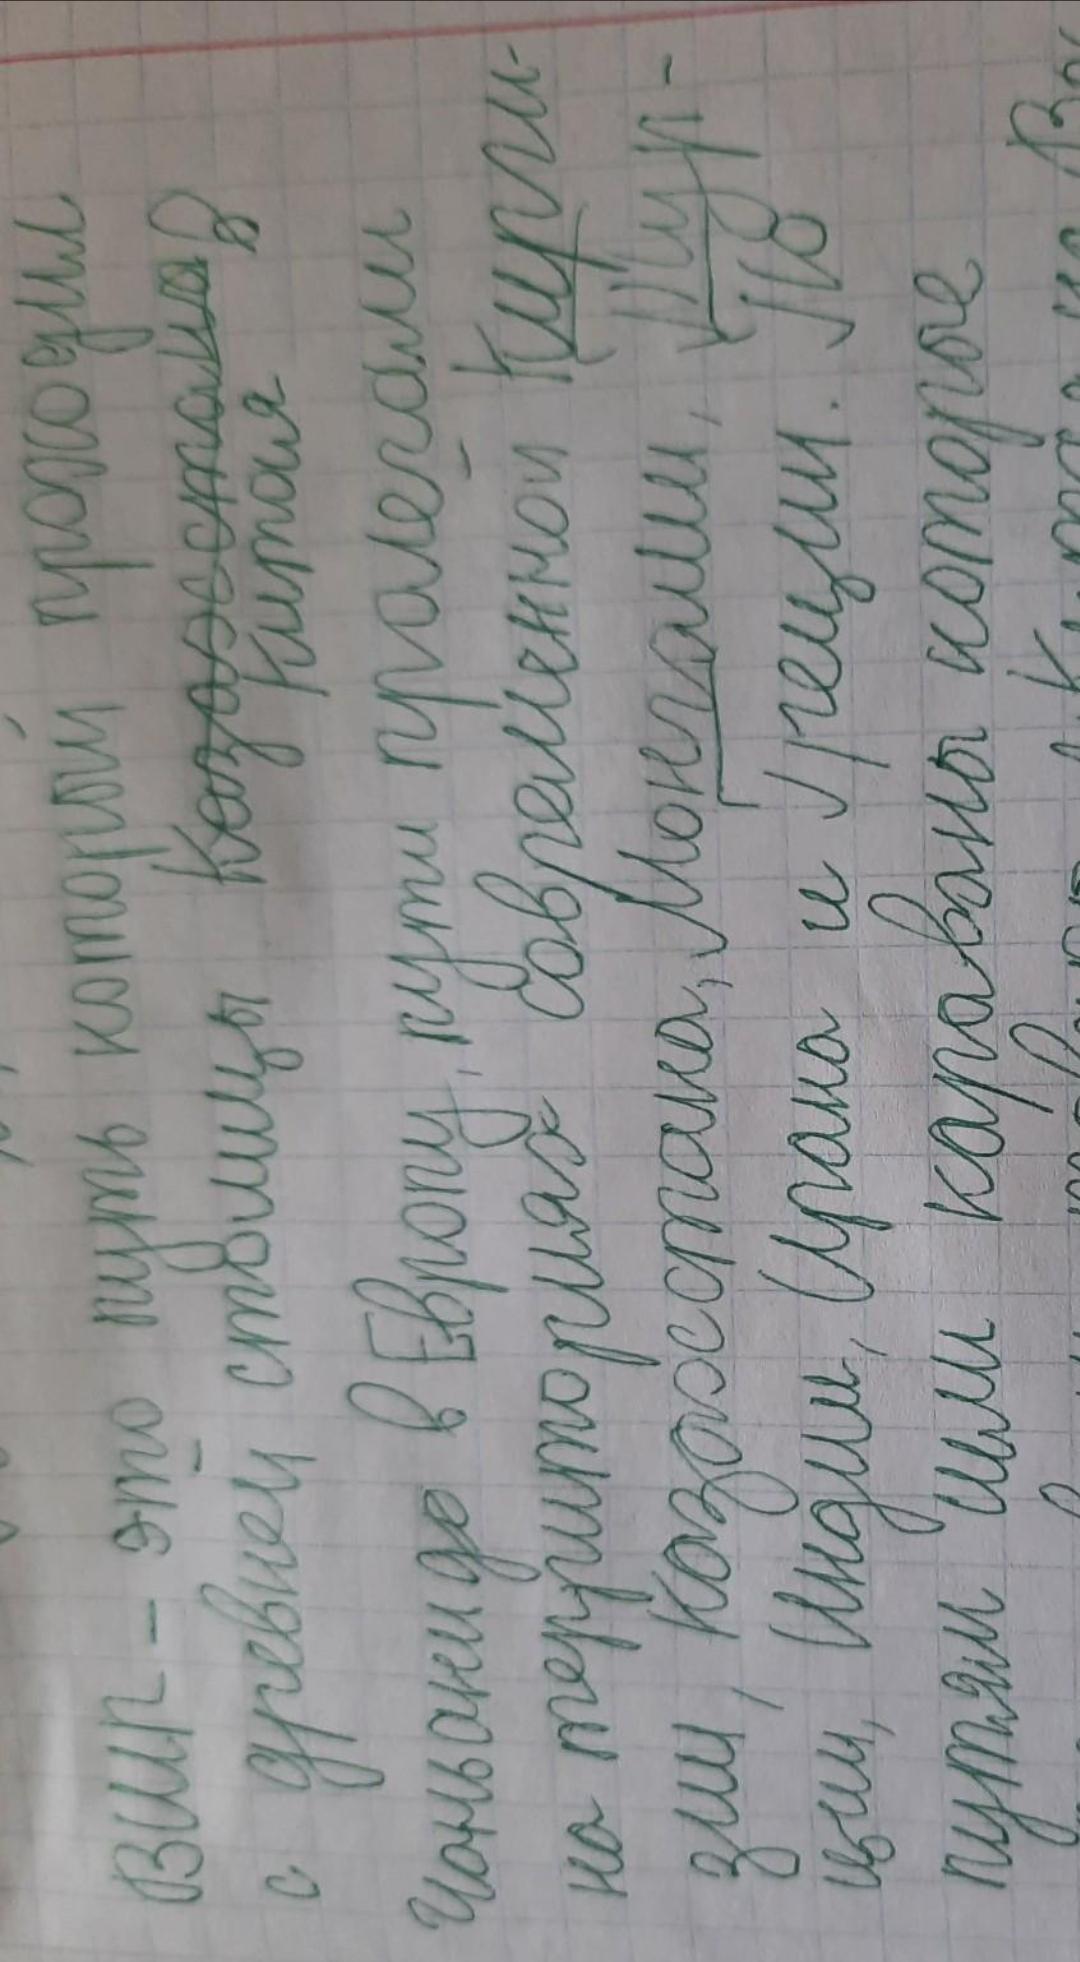 ВШП – это путь который проходил
с древней столицы Казахстана в
Китая
Чаньаньде в Европу, пути пролегали
на территориях современной Кирги-
зии, Казахстана, Монгалии, Тур-
ции, Индии, Ирана и Греции. По
путям шли караваны которые